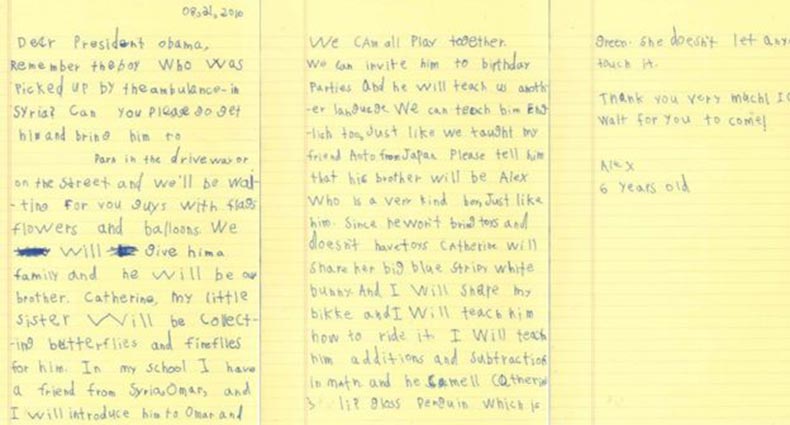 08,21,2016
Dear President obama,
Remember the boy who was
picked up by the ambulance in
Syria? Can you please go get
him and bring him to
Park in the driveway or
on the street and we'll be wai-
-ting for you guys with flags
flowers and balloons. We
will give him a
family and he will be our
brother. Catherine, my little
sister will be collect-
-ing butterflies and fireflies
for him. In my school I have
a friend from Syria, Omar, and
I will introduce him to Omar and
We can all play together.
We can invite him to birthday
parties and he will teach us anoth-
-er language. We can teach him eng-
-lish too, just like we taught my
friend Aoto from Japan. Please tell him
that his brother will be Alex
who is a very kind boy, Just like
him. Since he won't bring toys and
doesn't have toys Catherine will
share her big blue stripy white
bunny. And I will share my
bikke and I will teach him
how to ride it. I will teach
him additions and subtractions
in math. and he
penguin which is
green. She doesn't let any
touch it.
Thank you very much! I
wait for you to come!
Alex
6 years old